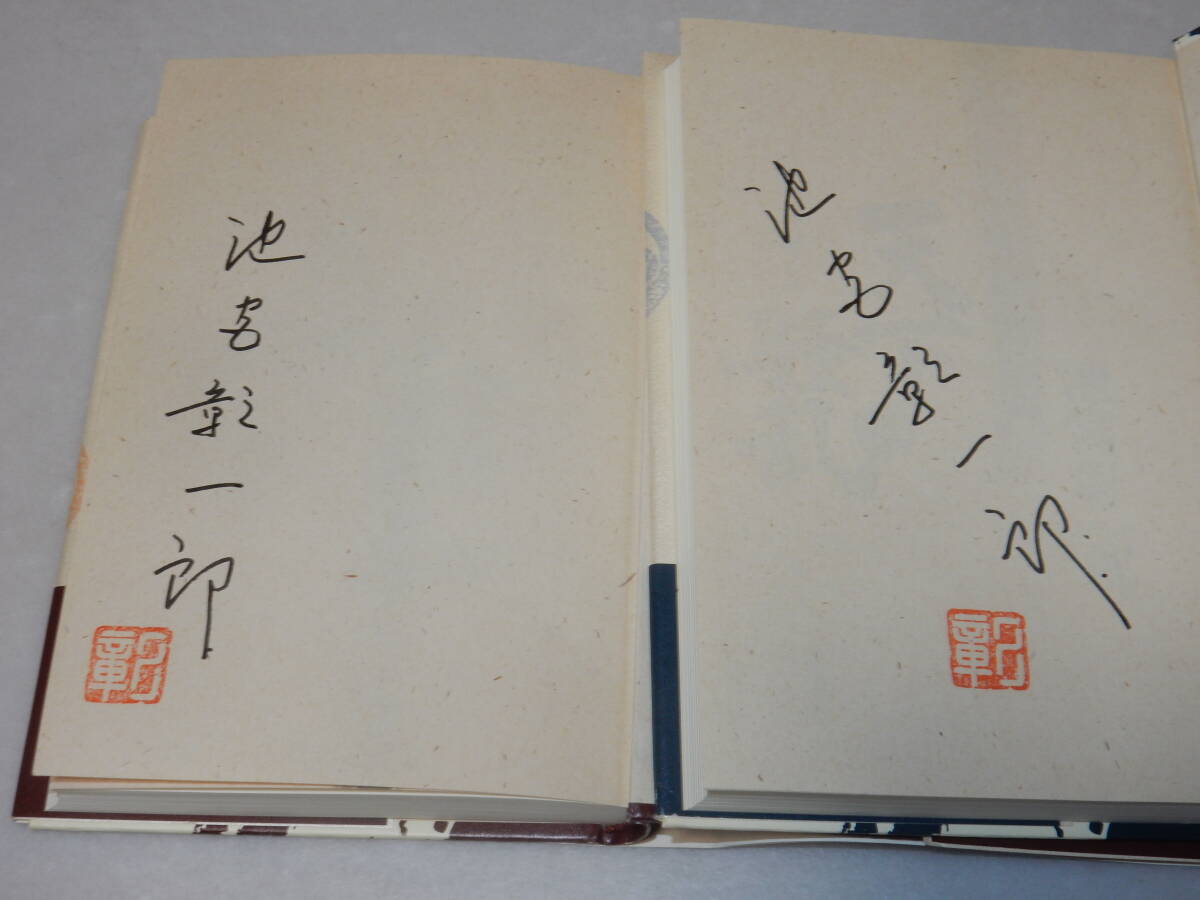 池宮彰一郎
彰
池宮彰一郎
彰